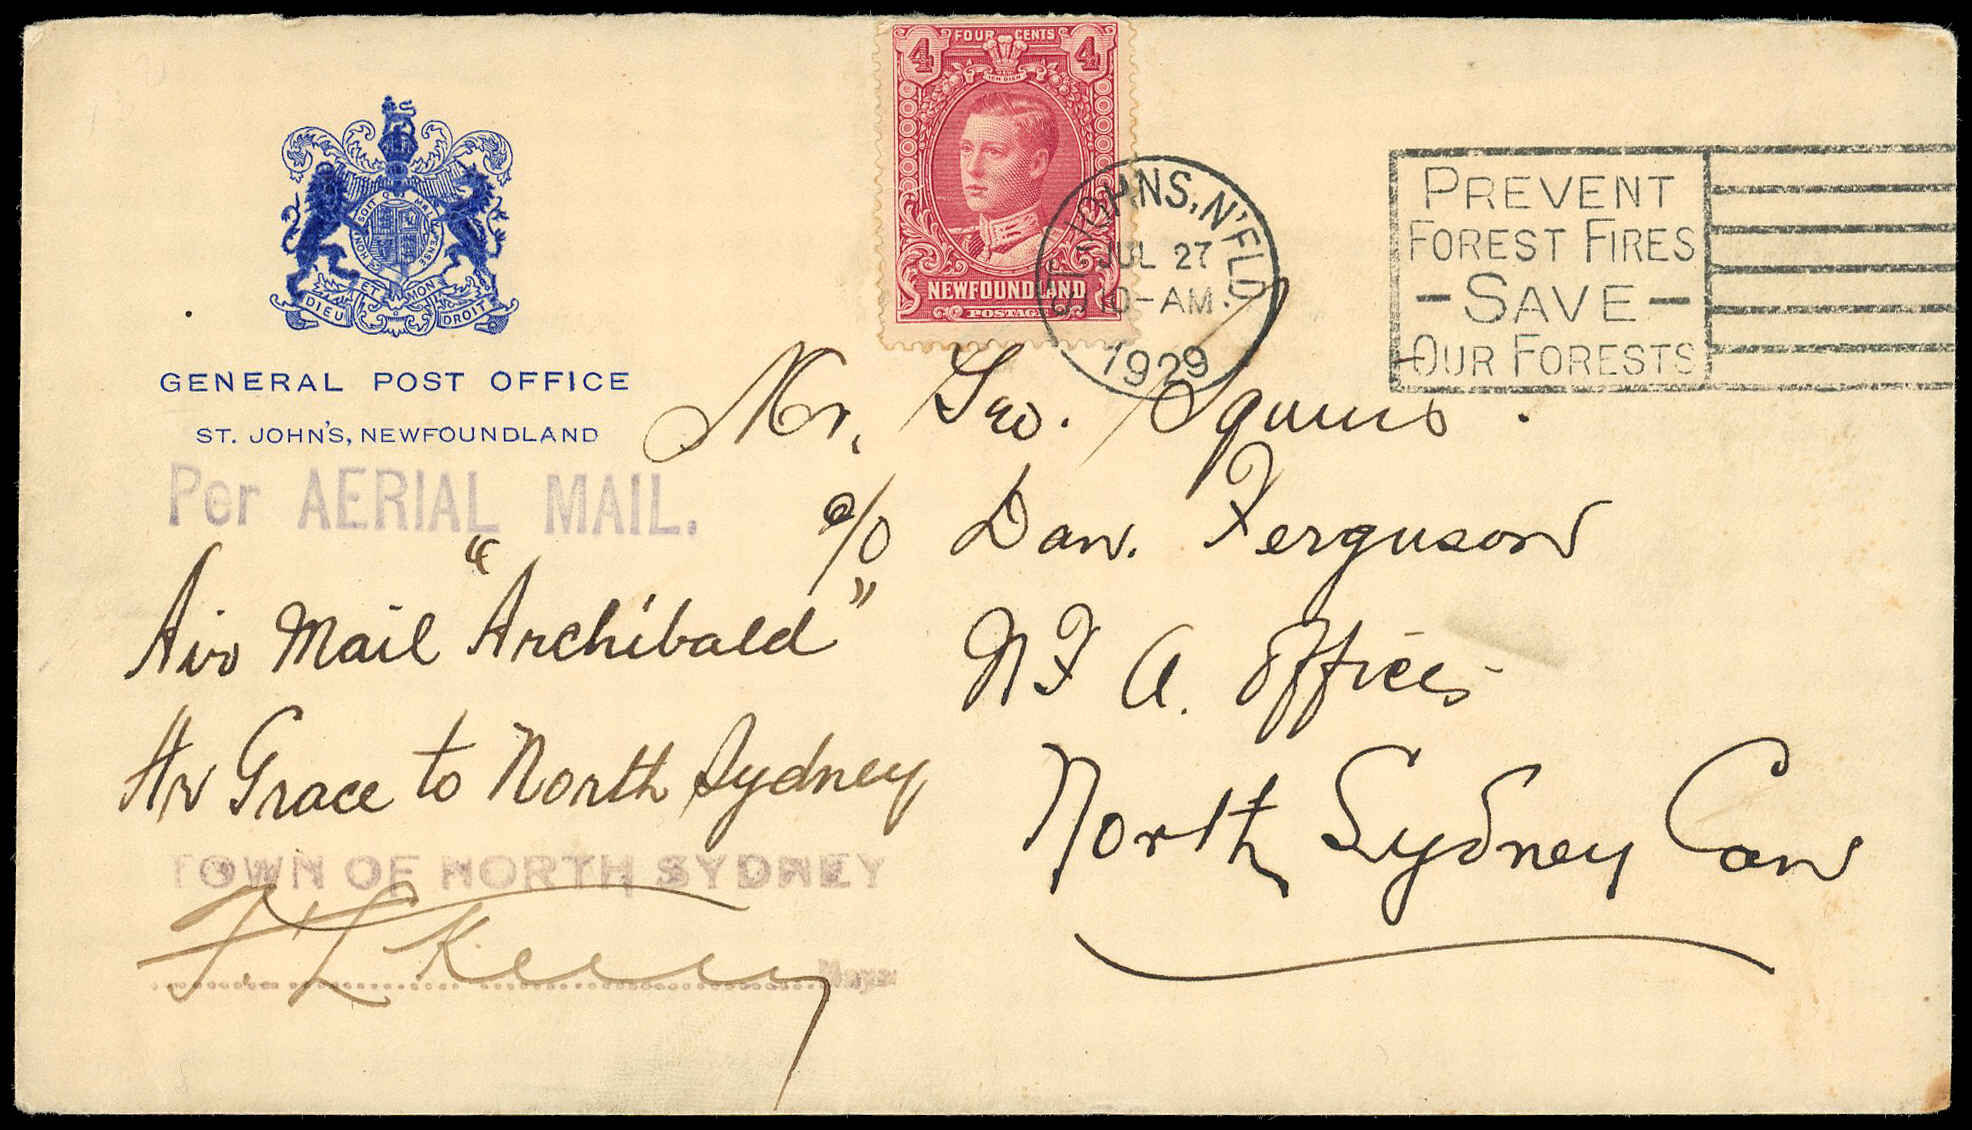 4 FOUR CENTS 4
ICH DIEN
NEWFOUNDLAND
POSTAGE
ST. JOHNS, N'FLD.
JUL 27
10-AM
1929
PREVENT
FOREST FIRES
- SAVE -
OUR FORESTS
HONI SOIT QUI MAL Y PENSE
DIEU ET MON DROIT
GENERAL POST OFFICE
ST. JOHN'S, NEWFOUNDLAND
Per AERIAL MAIL.
Air Mail "Archibald"
Hr Grace to North Sydney
TOWN OF NORTH SYDNEY
Mayor
Mr. Geo. Squires
c/o Dan. Ferguson
N F A. Offices
North Sydney Can